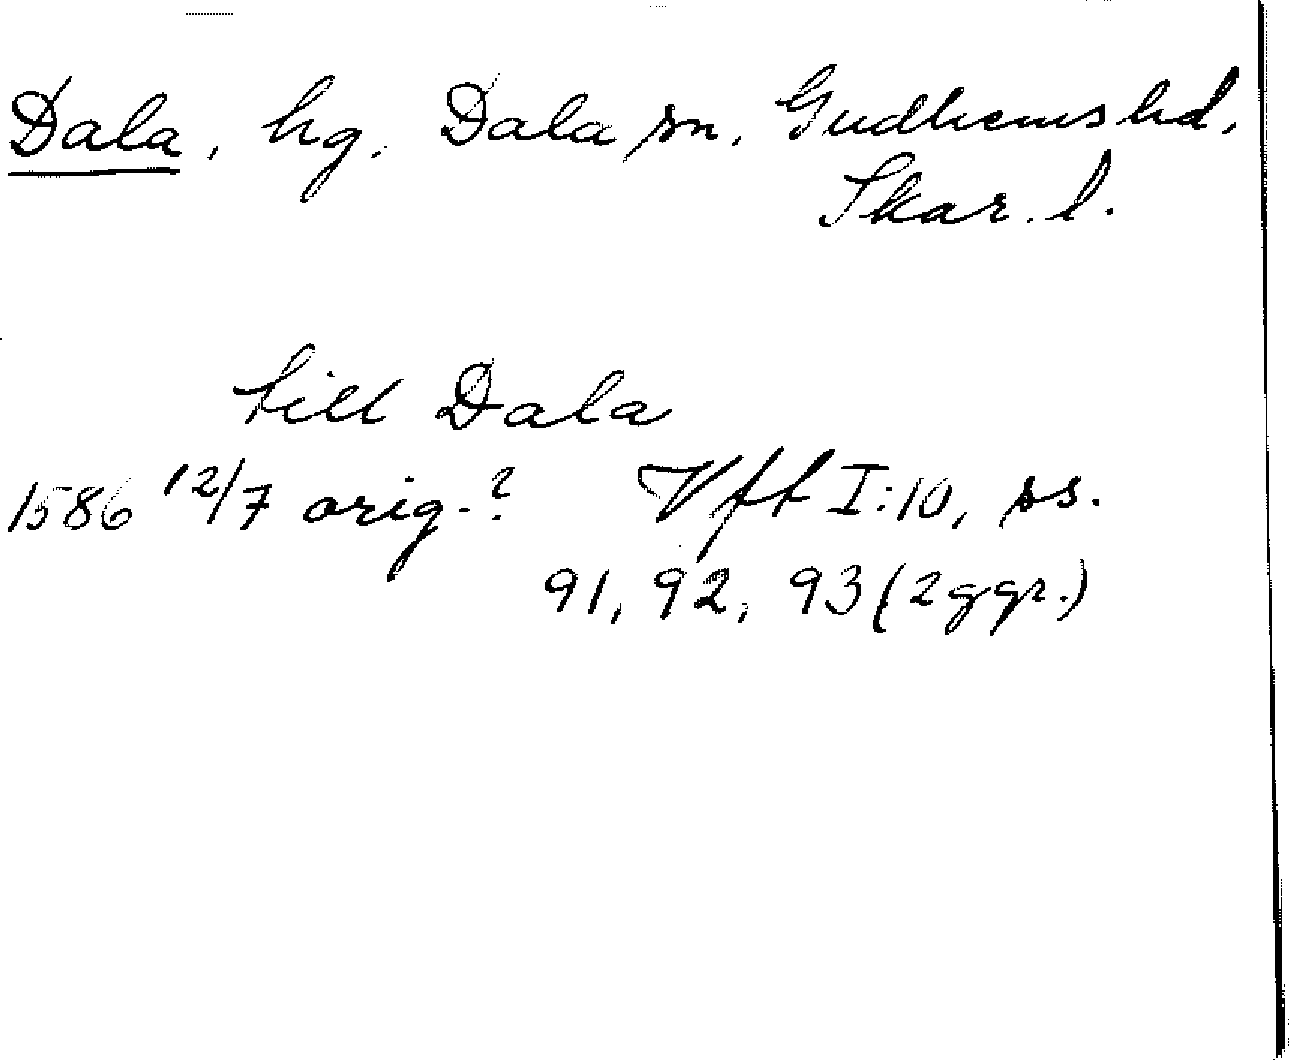 Dala, hg. Dala sn, Gudhems hd,
Skar. l.
till Dala
1586 12/7 orig.? Vft I:10, ss.
91, 92, 93 (2 ggr.)